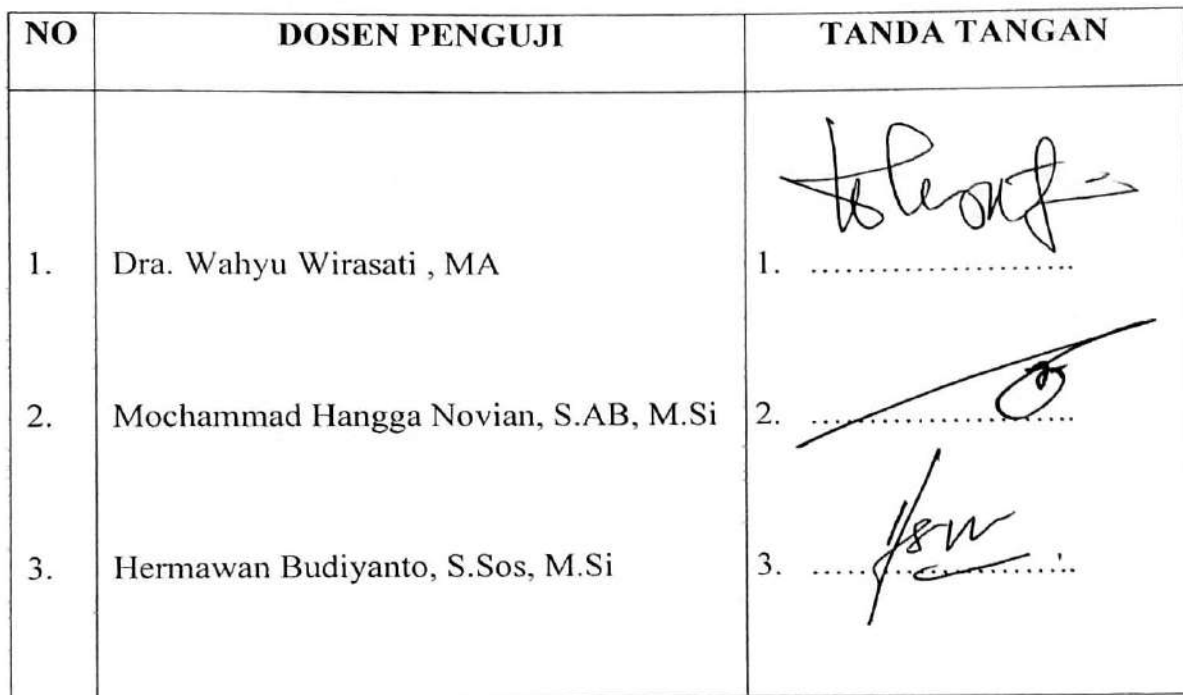 NO DOSEN PENGUJI TANDA TANGAN
1. Dra. Wahyu Wirasati , MA 1. ........................
2. Mochammad Hangga Novian, S.AB, M.Si 2. ........................
3. Hermawan Budiyanto, S.Sos, M.Si 3. ........................